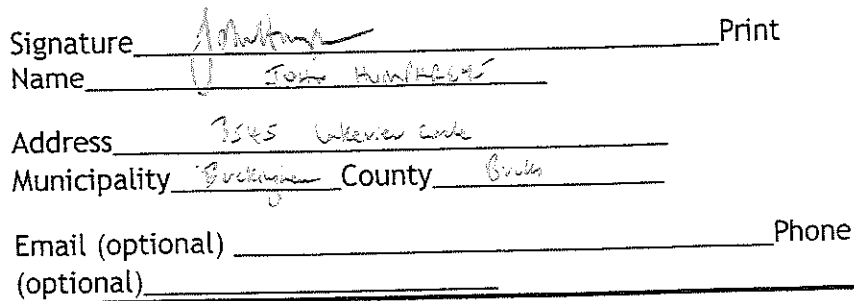 Signature John Hump Print
Name JOHN HUMPHREYS
Address 3545 Lakeview Circle
Municipality Buckingham County Bucks
Email (optional) Phone
(optional)